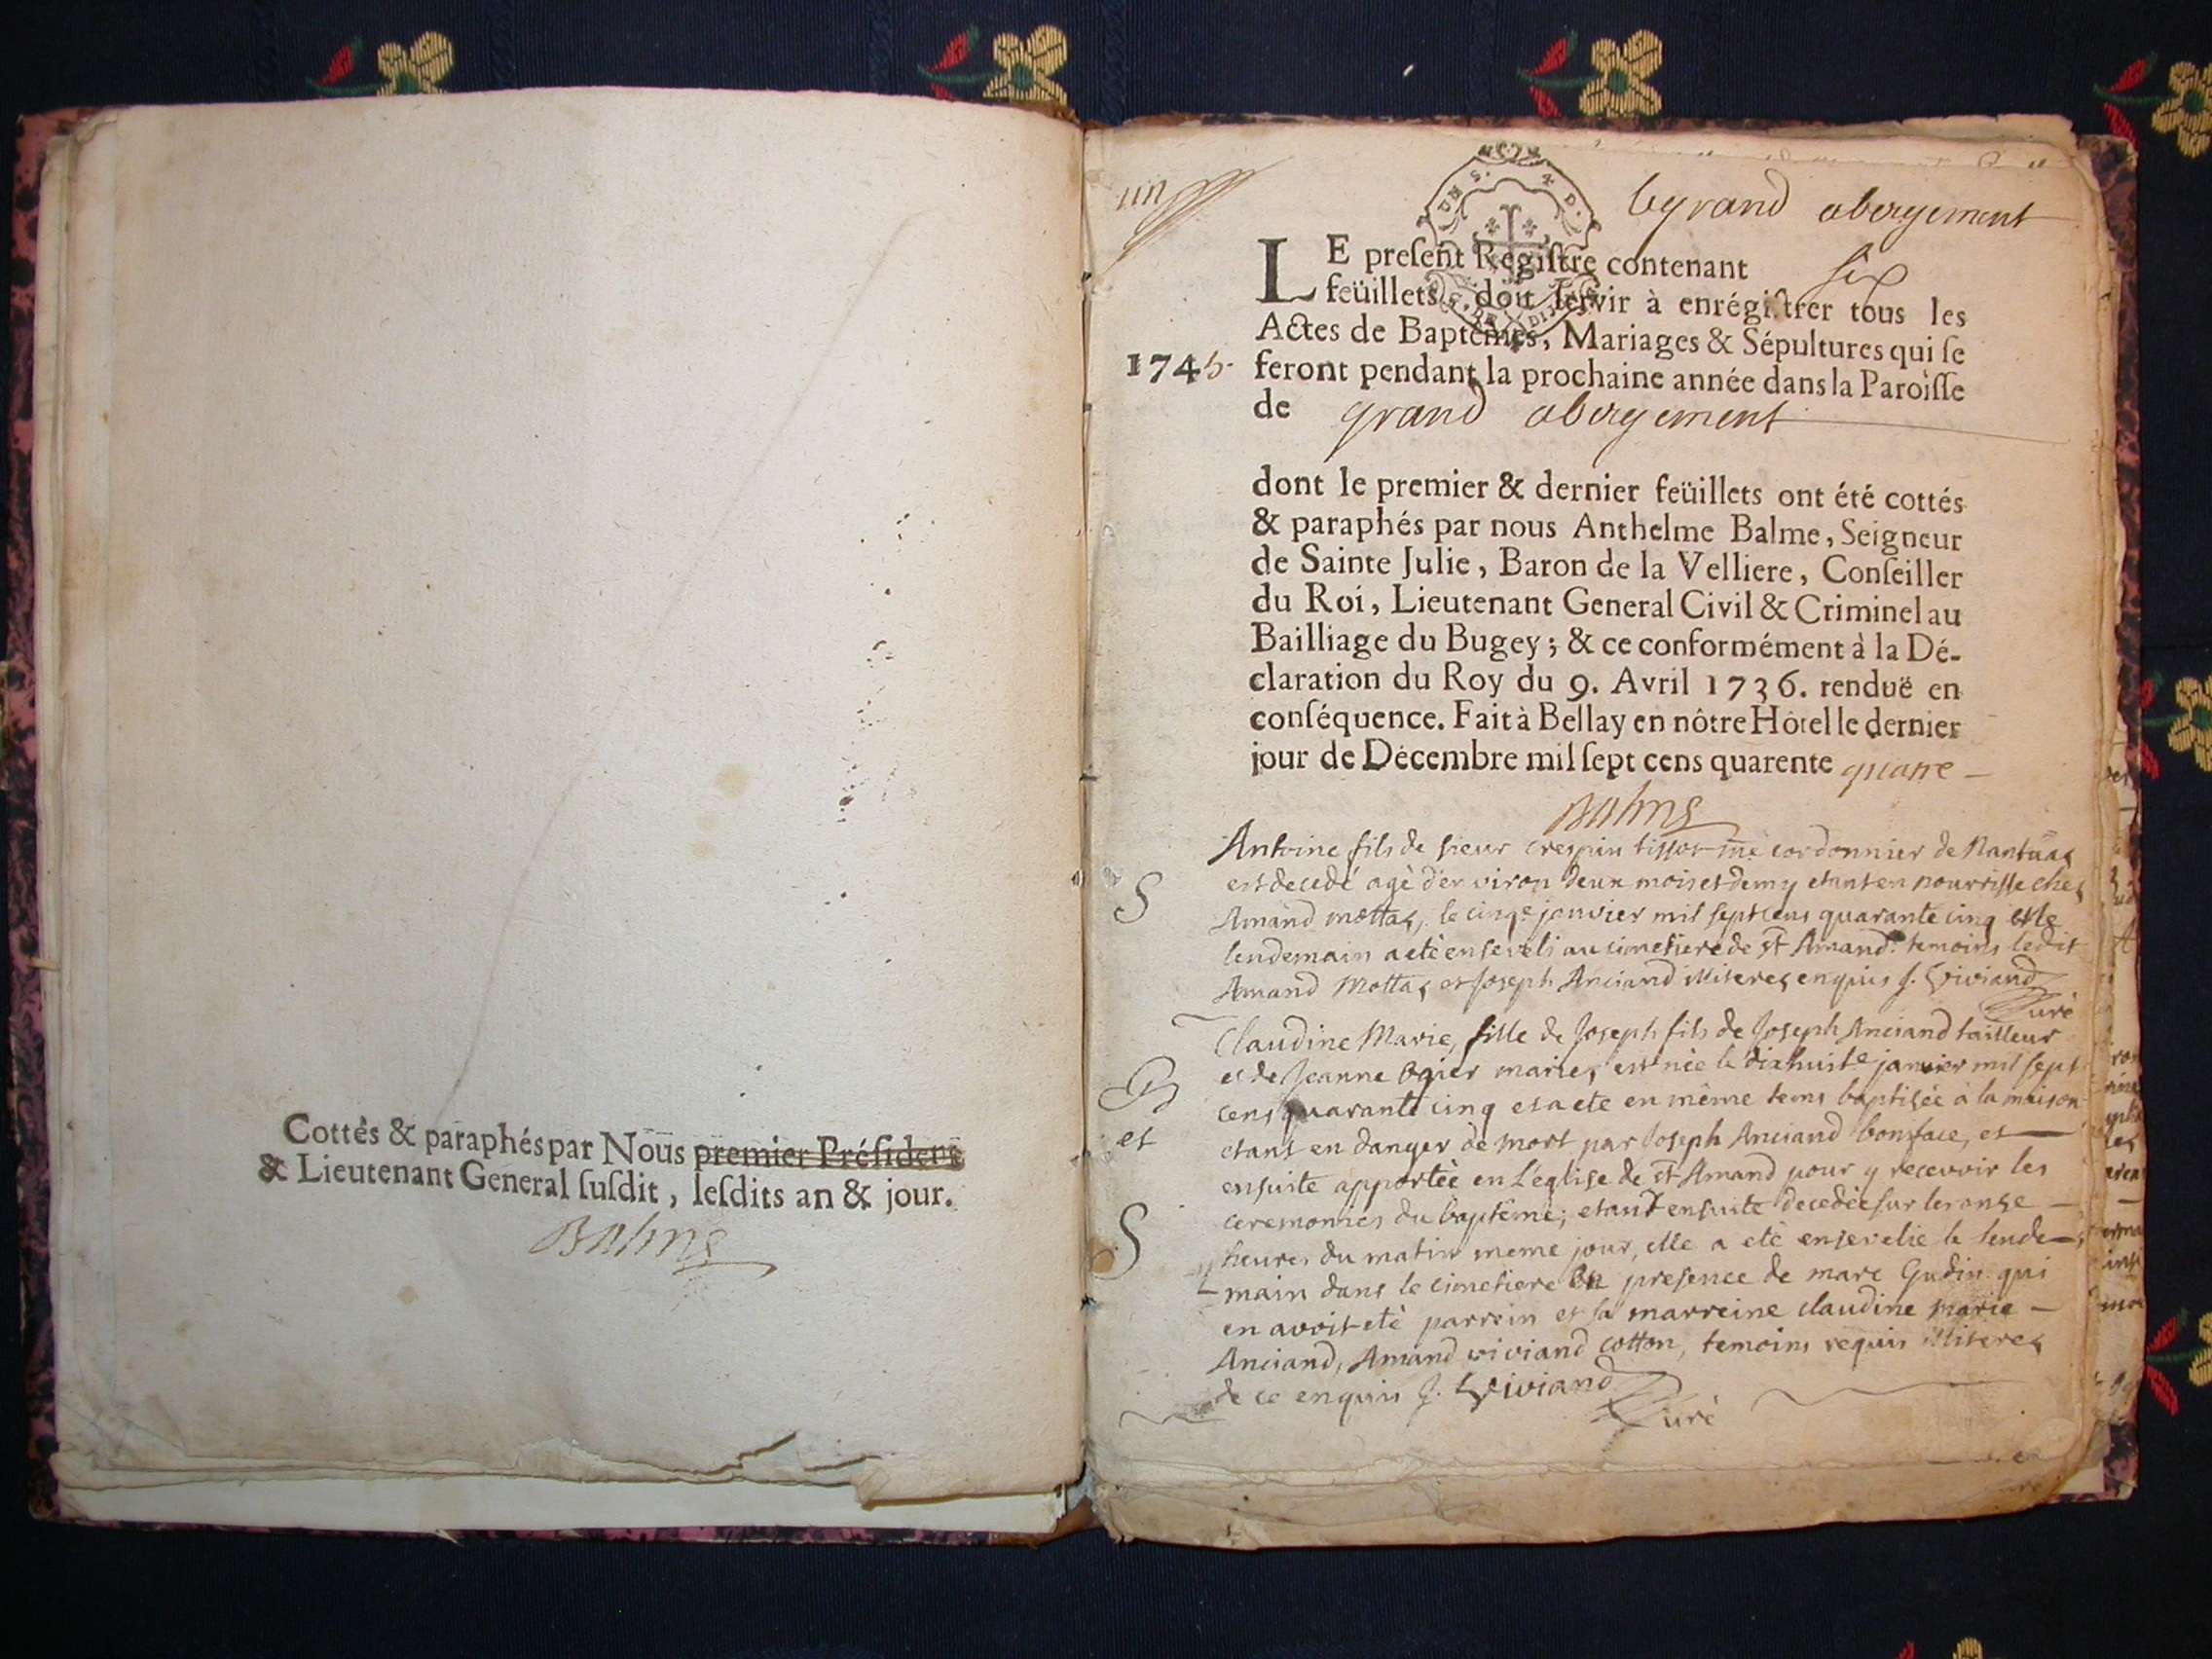 Cottés & paraphés par Nous premier Présidens
& Lieutenant General susdit, lesdits an & jour.
Balme
un
le grand abergement
LE present Registre contenant six
feüillets, doit servir à enrégistrer tous les
Actes de Baptêmes, Mariages & Sépultures qui se
1745. feront pendant la prochaine année dans la Paroisse
de grand abergement
dont le premier & dernier feüillets ont été cottés
& paraphés par nous Anthelme Balme, Seigneur
de Sainte Julie, Baron de la Velliere, Conseiller
du Roi, Lieutenant General Civil & Criminel au
Bailliage du Bugey; & ce conformément à la Dé-
claration du Roy du 9. Avril 1736. renduë en
conséquence. Fait à Bellay en nôtre Hôtel le dernier
jour de Décembre mil sept cens quarente quatre
Balme
Antoine fils de sieur Crespin tissot me cordonnier de Nantuas
est decedé agé d'environ deux mois et demy etant en nourrisse ches
S
Amand mottas, le cinqe janvier mil sept cens quarante cinq et le
lendemain a eté enseveli au cimetiere de st Amand. temoins ledit
Amand Mottas et Joseph Anciand illiteres enquis J. Viviand
Curé
Claudine Marie, fille de Joseph fils de Joseph Anciand tailleur
et de Jeanne Ogier maries, est née le dixhuite janvier mil sept
B
cens quarante cinq et a ete en même tems baptisée à la maison
et
etant en danger de mort par Joseph Anciand boniface, et
ensuite apportée en L'eglise de st Amand pour y recevoir les
ceremonies du baptême; etant ensuite decedée sur les onze
S
heures du matin meme jour, elle a eté ensevelie le lende-
main dans le cimetiere en presence de marc Gudin qui
en avoit eté parrein et sa marreine claudine marie
Anciand, Amand viviand cotton, temoins requis illiteres
de ce enquis J. Viviand
Curé